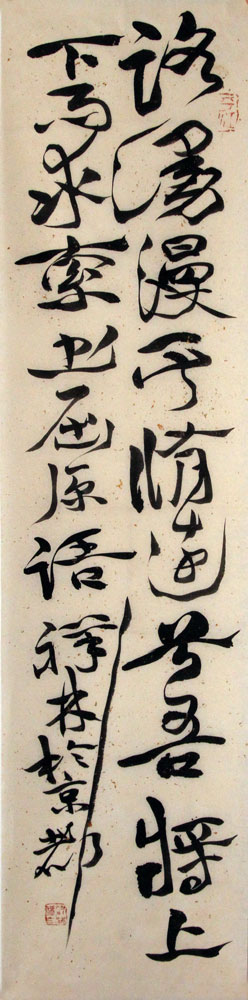 路漫漫其脩遠兮吾將上
下而求索书屈原语祥林於京都